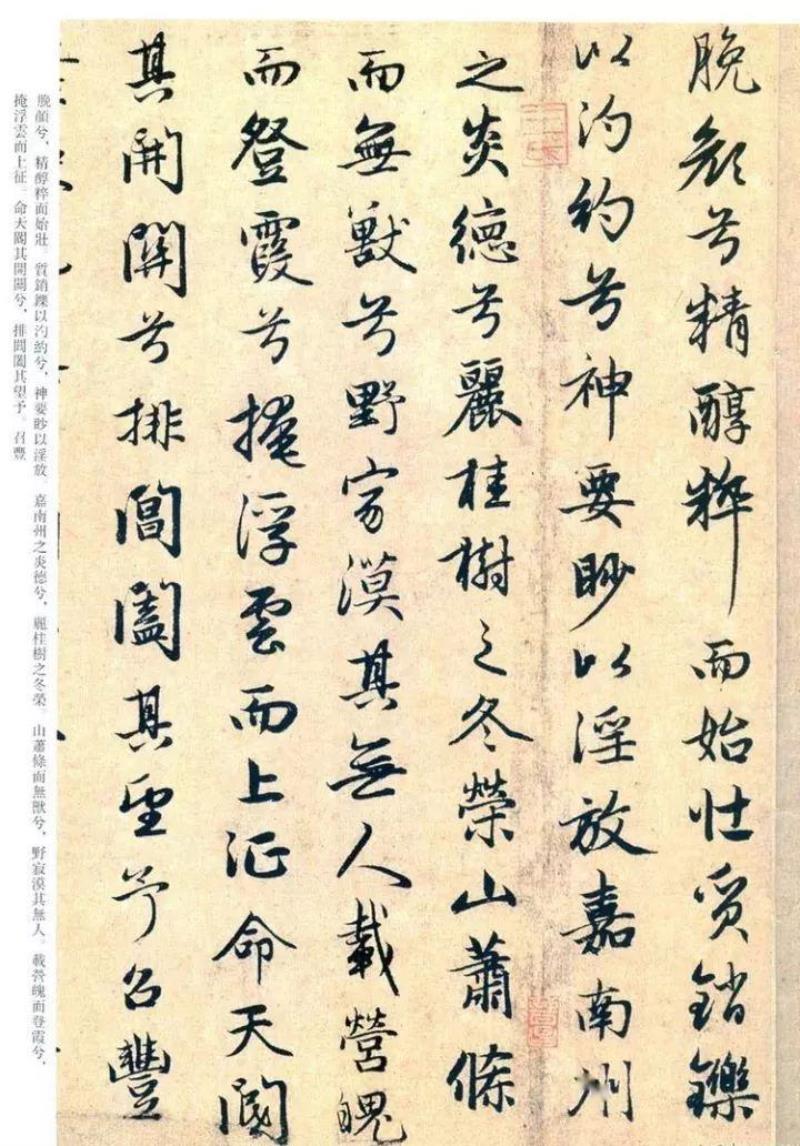 脕顔兮精醇粹而始壯質銷鑠
以汋約兮神要眇以淫放嘉南州
之炎德兮麗桂樹之冬榮山蕭條
而無獸兮野寂漠其無人載營魄
而登霞兮掩浮雲而上征命天閽
其開關兮排閶闔其望予召豐
脕顔兮，精醇粹而始壯。質銷鑠以汋約兮，神要眇以淫放。嘉南州之炎德兮，麗桂樹之冬榮。山蕭條而無獸兮，野寂漠其無人。載營魄而登霞兮，
掩浮雲而上征。命天閽其開關兮，排閶闔其望予。召豐